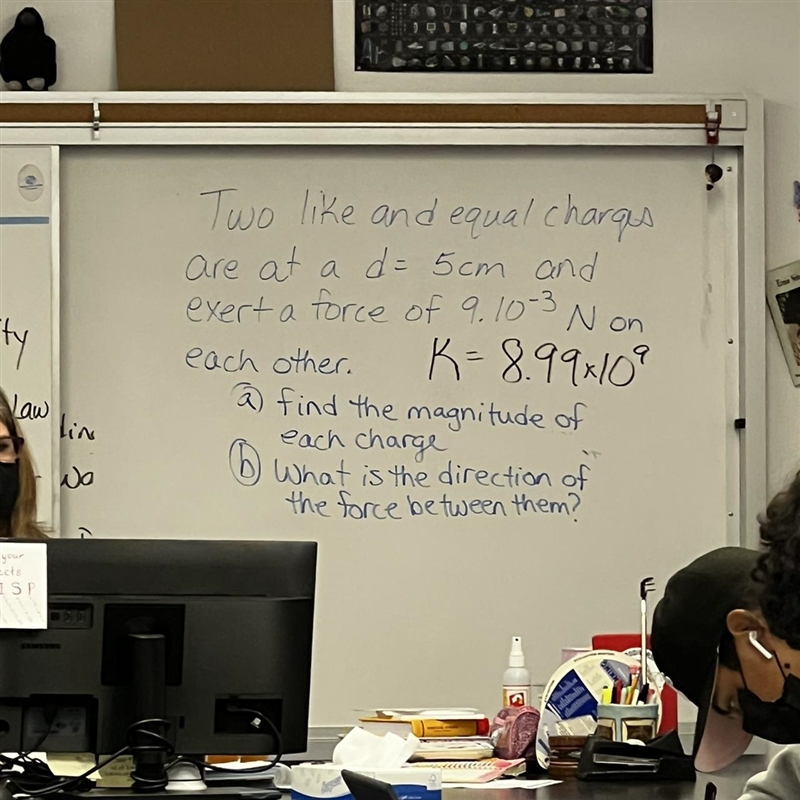 Two like and equal charges
are at a d= 5cm and
exert a force of 9.10⁻³ N on
each other. K= 8.99x10⁹
a) find the magnitude of
each charge
b) What is the direction of
the force between them?
Law
your
ISP
SAMSUNG